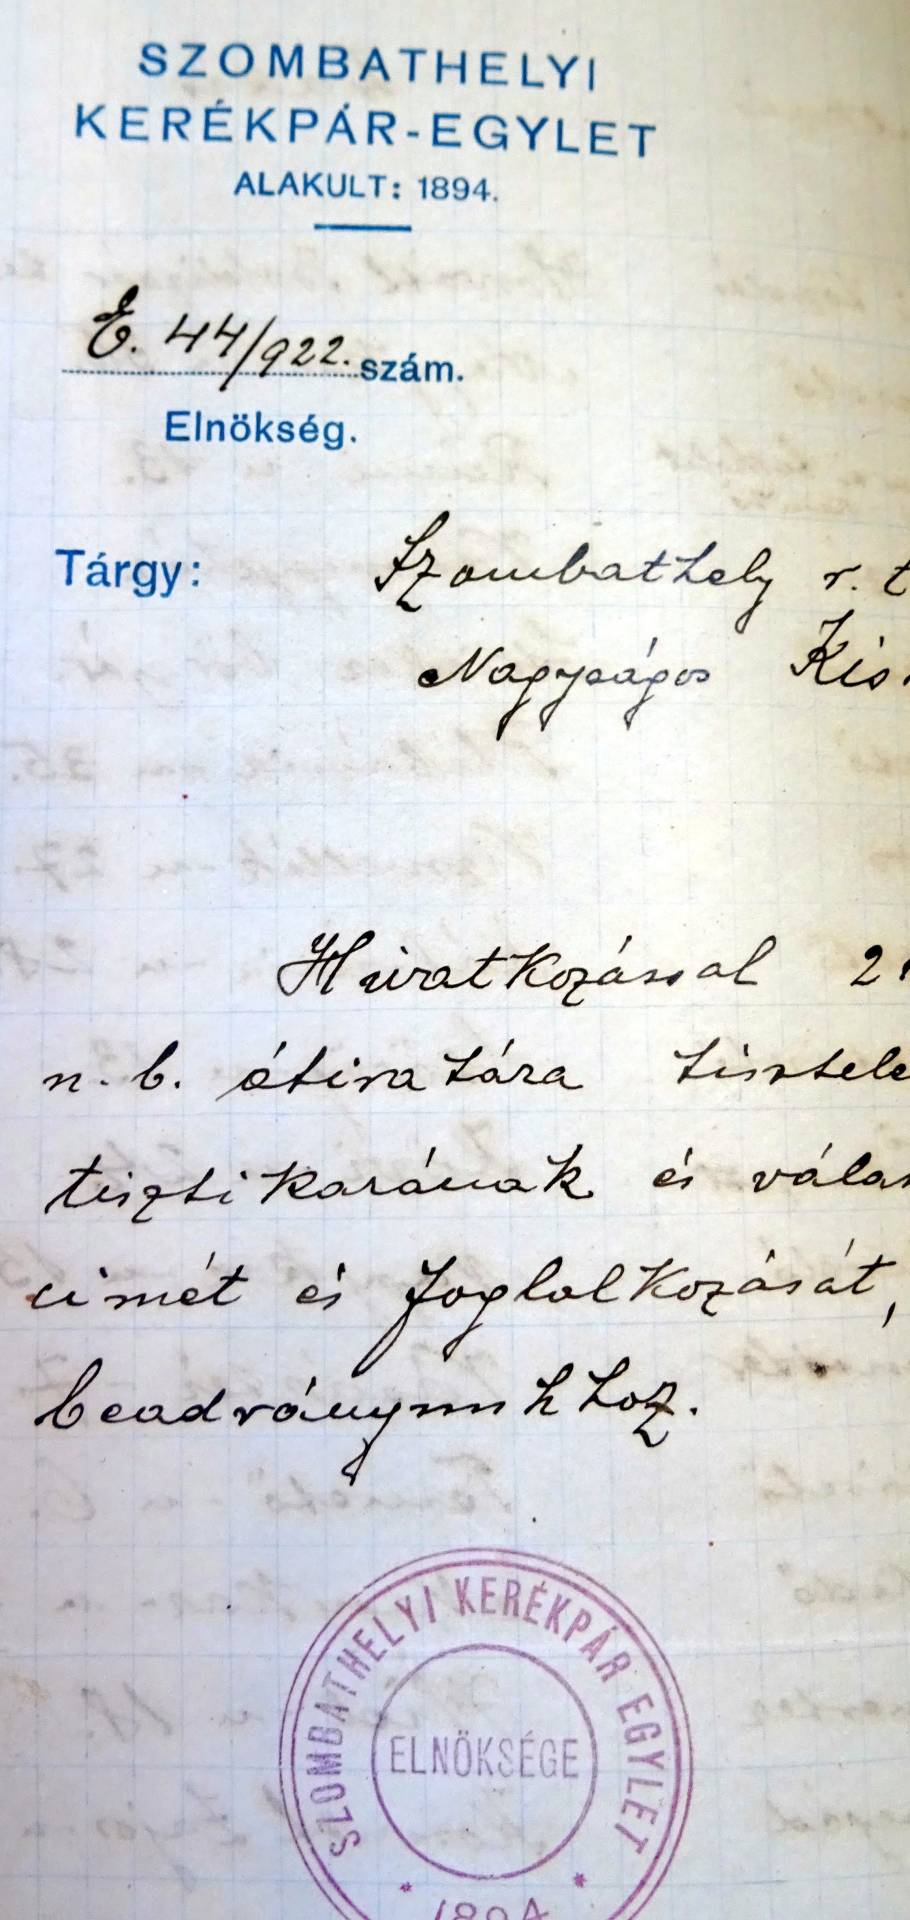 SZOMBATHELYI
KERÉKPÁR-EGYLET
ALAKULT: 1894.
E. 44/922. szám.
Elnökség.
Tárgy:
Szombathely r. t
Nagyságos Kis
Hivatkozással 2
n. b. átiratára tisztele
tisztikarának és válas
cimét és foglalkozását,
beadványunkhoz.
SZOMBATHELYI KERÉKPÁR EGYLET
ELNÖKSÉGE
* 1894 *